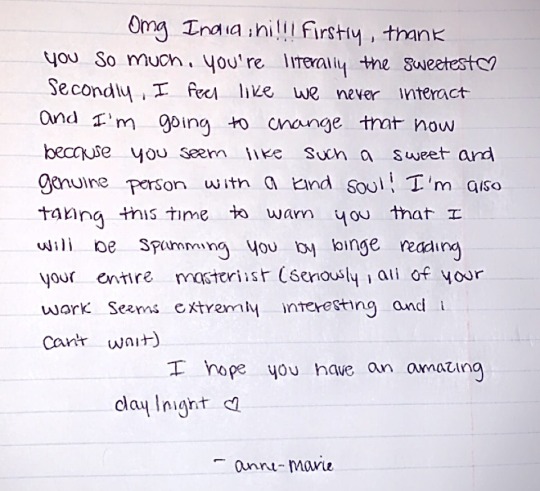 Omg India, hi!!! Firstly, thank
you so much. you're literally the sweetest♡
Secondly, I feel like we never interact
and I'm going to change that now
because you seem like such a sweet and
genuine person with a kind soul! I'm also
taking this time to warn you that I
will be spamming you by binge reading
your entire masterlist (seriously, all of your
work seems extremly interesting and i
can't wait)
I hope you have an amazing
day/night ♡
- anne-marie